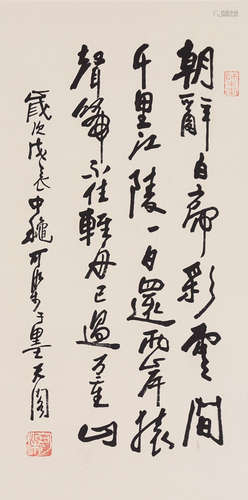 朝辭白帝彩雲間
千里江陵一日還兩岸猿
聲啼不住輕舟已過万重山
歲次戊辰中龝可染于墨天閣